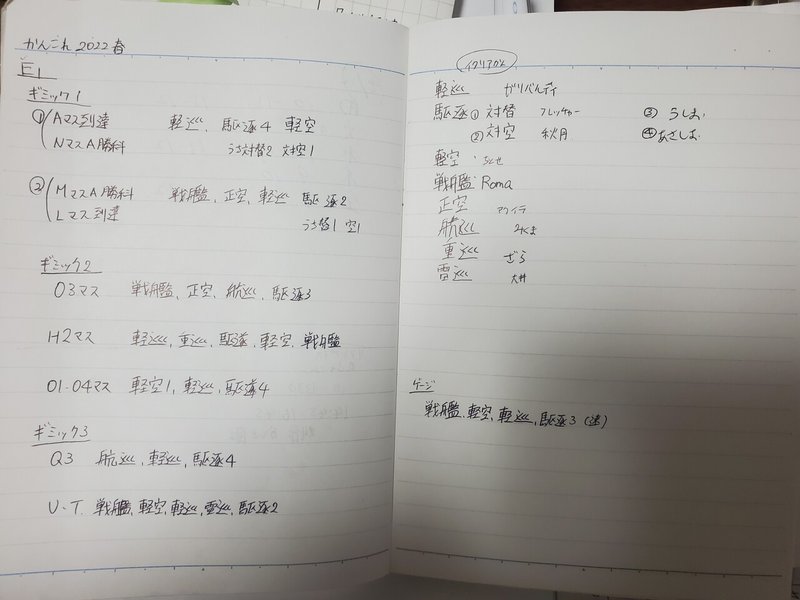 かんこれ 2022春
E1
ギミック1
① Aマス到達 軽巡、駆逐4 軽空
NマスA勝利 うち対潜2 対空1
② MマスA勝利 戦艦、正空、軽巡 駆逐2
Lマス到達 うち潜1 空1
ギミック2
O3マス 戦艦、正空、航巡、駆逐3
H2マス 軽巡、重巡、駆逐、軽空、戦艦
O1.O4マス 軽空1、軽巡、駆逐4
ギミック3
Q3 航巡、軽巡、駆逐4
U・T 戦艦、軽空、軽巡、雷巡、駆逐2
イタリアかん
軽巡 ガリバルディ
駆逐 ① 対潜 フレッチャー ③ うしお
② 対空 秋月 ④ あさしお
軽空 ちとせ
戦艦 Roma
正空 アクイラ
航巡 みくま
重巡 ざら
雷巡 大井
ゲージ
戦艦、軽空、軽巡、駆逐3